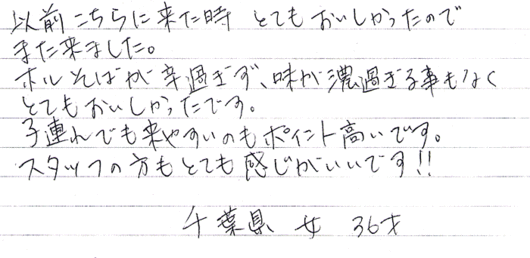 以前こちらに来た時 とてもおいしかったので
また来ました。
ホルそばが辛過ぎず、味が濃過ぎる事もなく
とてもおいしかったです。
子連れでも来やすいのもポイント高いです。
スタッフの方もとても感じがいいです!!
千葉県 女 36才